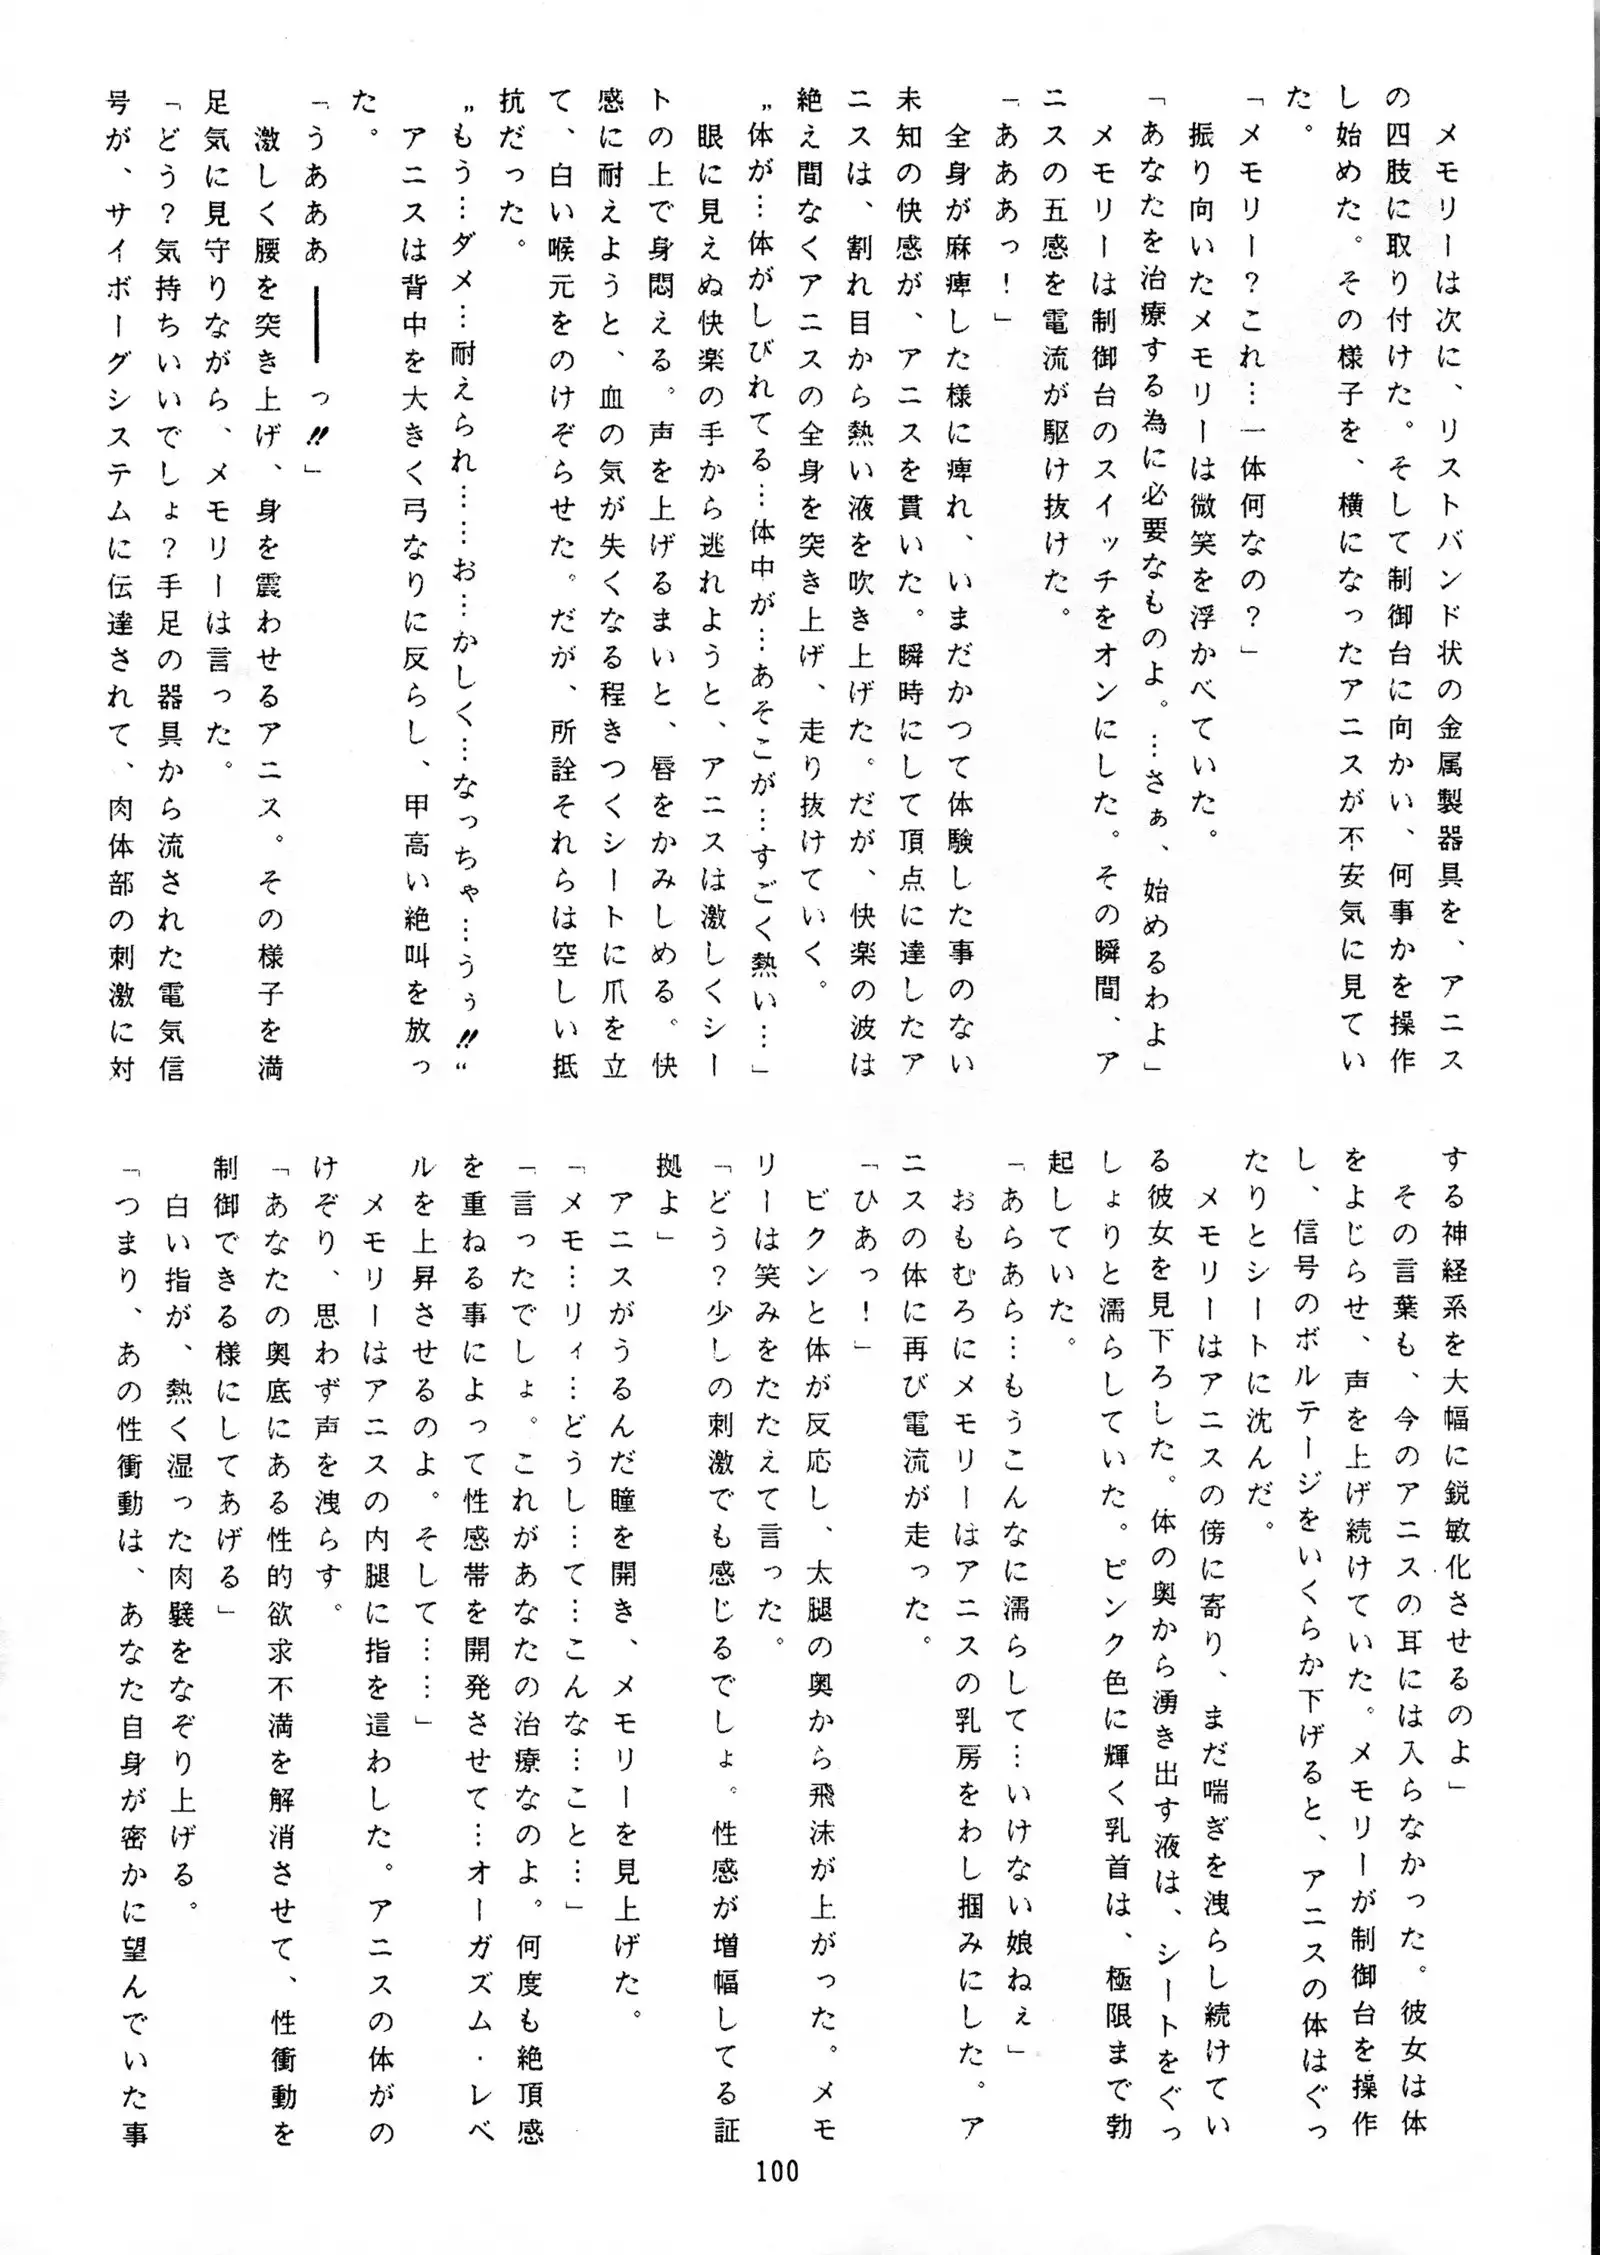 メモリーは次に、リストバンド状の金属製器具を、アニス
の四肢に取り付けた。そして制御台に向かい、何事かを操作
し始めた。その様子を、横になったアニスが不安気に見てい
た。
「メモリー？これ…一体何なの？」
振り向いたメモリーは微笑を浮かべていた。
「あなたを治療する為に必要なものよ。…さぁ、始めるわよ」
メモリーは制御台のスイッチをオンにした。その瞬間、ア
ニスの五感を電流が駆け抜けた。
「あああっ！」
全身が麻痺した様に痺れ、いまだかつて体験した事のない
未知の快感が、アニスを貫いた。瞬時にして頂点に達したア
ニスは、割れ目から熱い液を吹き上げた。だが、快楽の波は
絶え間なくアニスの全身を突き上げ、走り抜けていく。
〝体が…体がしびれてる…体中が…あそこが…すごく熱い…」
眼に見えぬ快楽の手から逃れようと、アニスは激しくシー
トの上で身悶える。声を上げるまいと、唇をかみしめる。快
感に耐えようと、血の気が失くなる程きつくシートに爪を立
て、白い喉元をのけぞらせた。だが、所詮それらは空しい抵
抗だった。
〝もう…ダメ…耐えられ……お…かしく…なっちゃ…うぅ!!〟
アニスは背中を大きく弓なりに反らし、甲高い絶叫を放っ
た。
「うあああ――っ!!」
激しく腰を突き上げ、身を震わせるアニス。その様子を満
足気に見守りながら、メモリーは言った。
「どう？気持ちいいでしょ？手足の器具から流された電気信
号が、サイボーグシステムに伝達されて、肉体部の刺激に対
する神経系を大幅に鋭敏化させるのよ」
その言葉も、今のアニスの耳には入らなかった。彼女は体
をよじらせ、声を上げ続けていた。メモリーが制御台を操作
し、信号のボルテージをいくらか下げると、アニスの体はぐっ
たりとシートに沈んだ。
メモリーはアニスの傍に寄り、まだ喘ぎを洩らし続けてい
る彼女を見下ろした。体の奥から湧き出す液は、シートをぐっ
しょりと濡らしていた。ピンク色に輝く乳首は、極限まで勃
起していた。
「あらあら…もうこんなに濡らして…いけない娘ねぇ」
おもむろにメモリーはアニスの乳房をわし掴みにした。ア
ニスの体に再び電流が走った。
「ひあっ！」
ビクンと体が反応し、太腿の奥から飛沫が上がった。メモ
リーは笑みをたたえて言った。
「どう？少しの刺激でも感じるでしょ。性感が増幅してる証
拠よ」
アニスがうるんだ瞳を開き、メモリーを見上げた。
「メモ…リィ…どうし…て…こんな…こと…」
「言ったでしょ。これがあなたの治療なのよ。何度も絶頂感
を重ねる事によって性感帯を開発させて…オーガズム・レベ
ルを上昇させるのよ。そして……」
メモリーはアニスの内腿に指を這わした。アニスの体がの
けぞり、思わず声を洩らす。
「あなたの奥底にある性的欲求不満を解消させて、性衝動を
制御できる様にしてあげる」
白い指が、熱く湿った肉襞をなぞり上げる。
「つまり、あの性衝動は、あなた自身が密かに望んでいた事
100